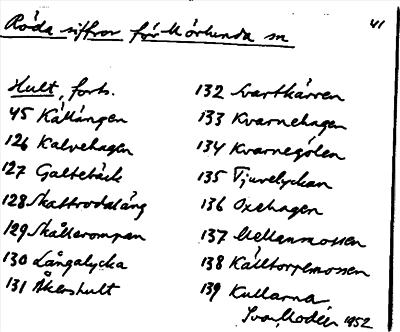 41
Röda siffror för Mörlunda sn
Hult, forts.
45 Källängen
126 Kalvehagen
127 Galtebäck
128 Skattrodaläng
129 Skållerompen
130 Långalycka
131 Åkershult
132 Svartkärren
133 Kvarnehagen
134 Kvarnegölen
135 Tjurelyckan
136 Oxehagen
137 Mellanmossen
138 Källtorpemossen
139 Kullarna
Ivar Modéer 1952